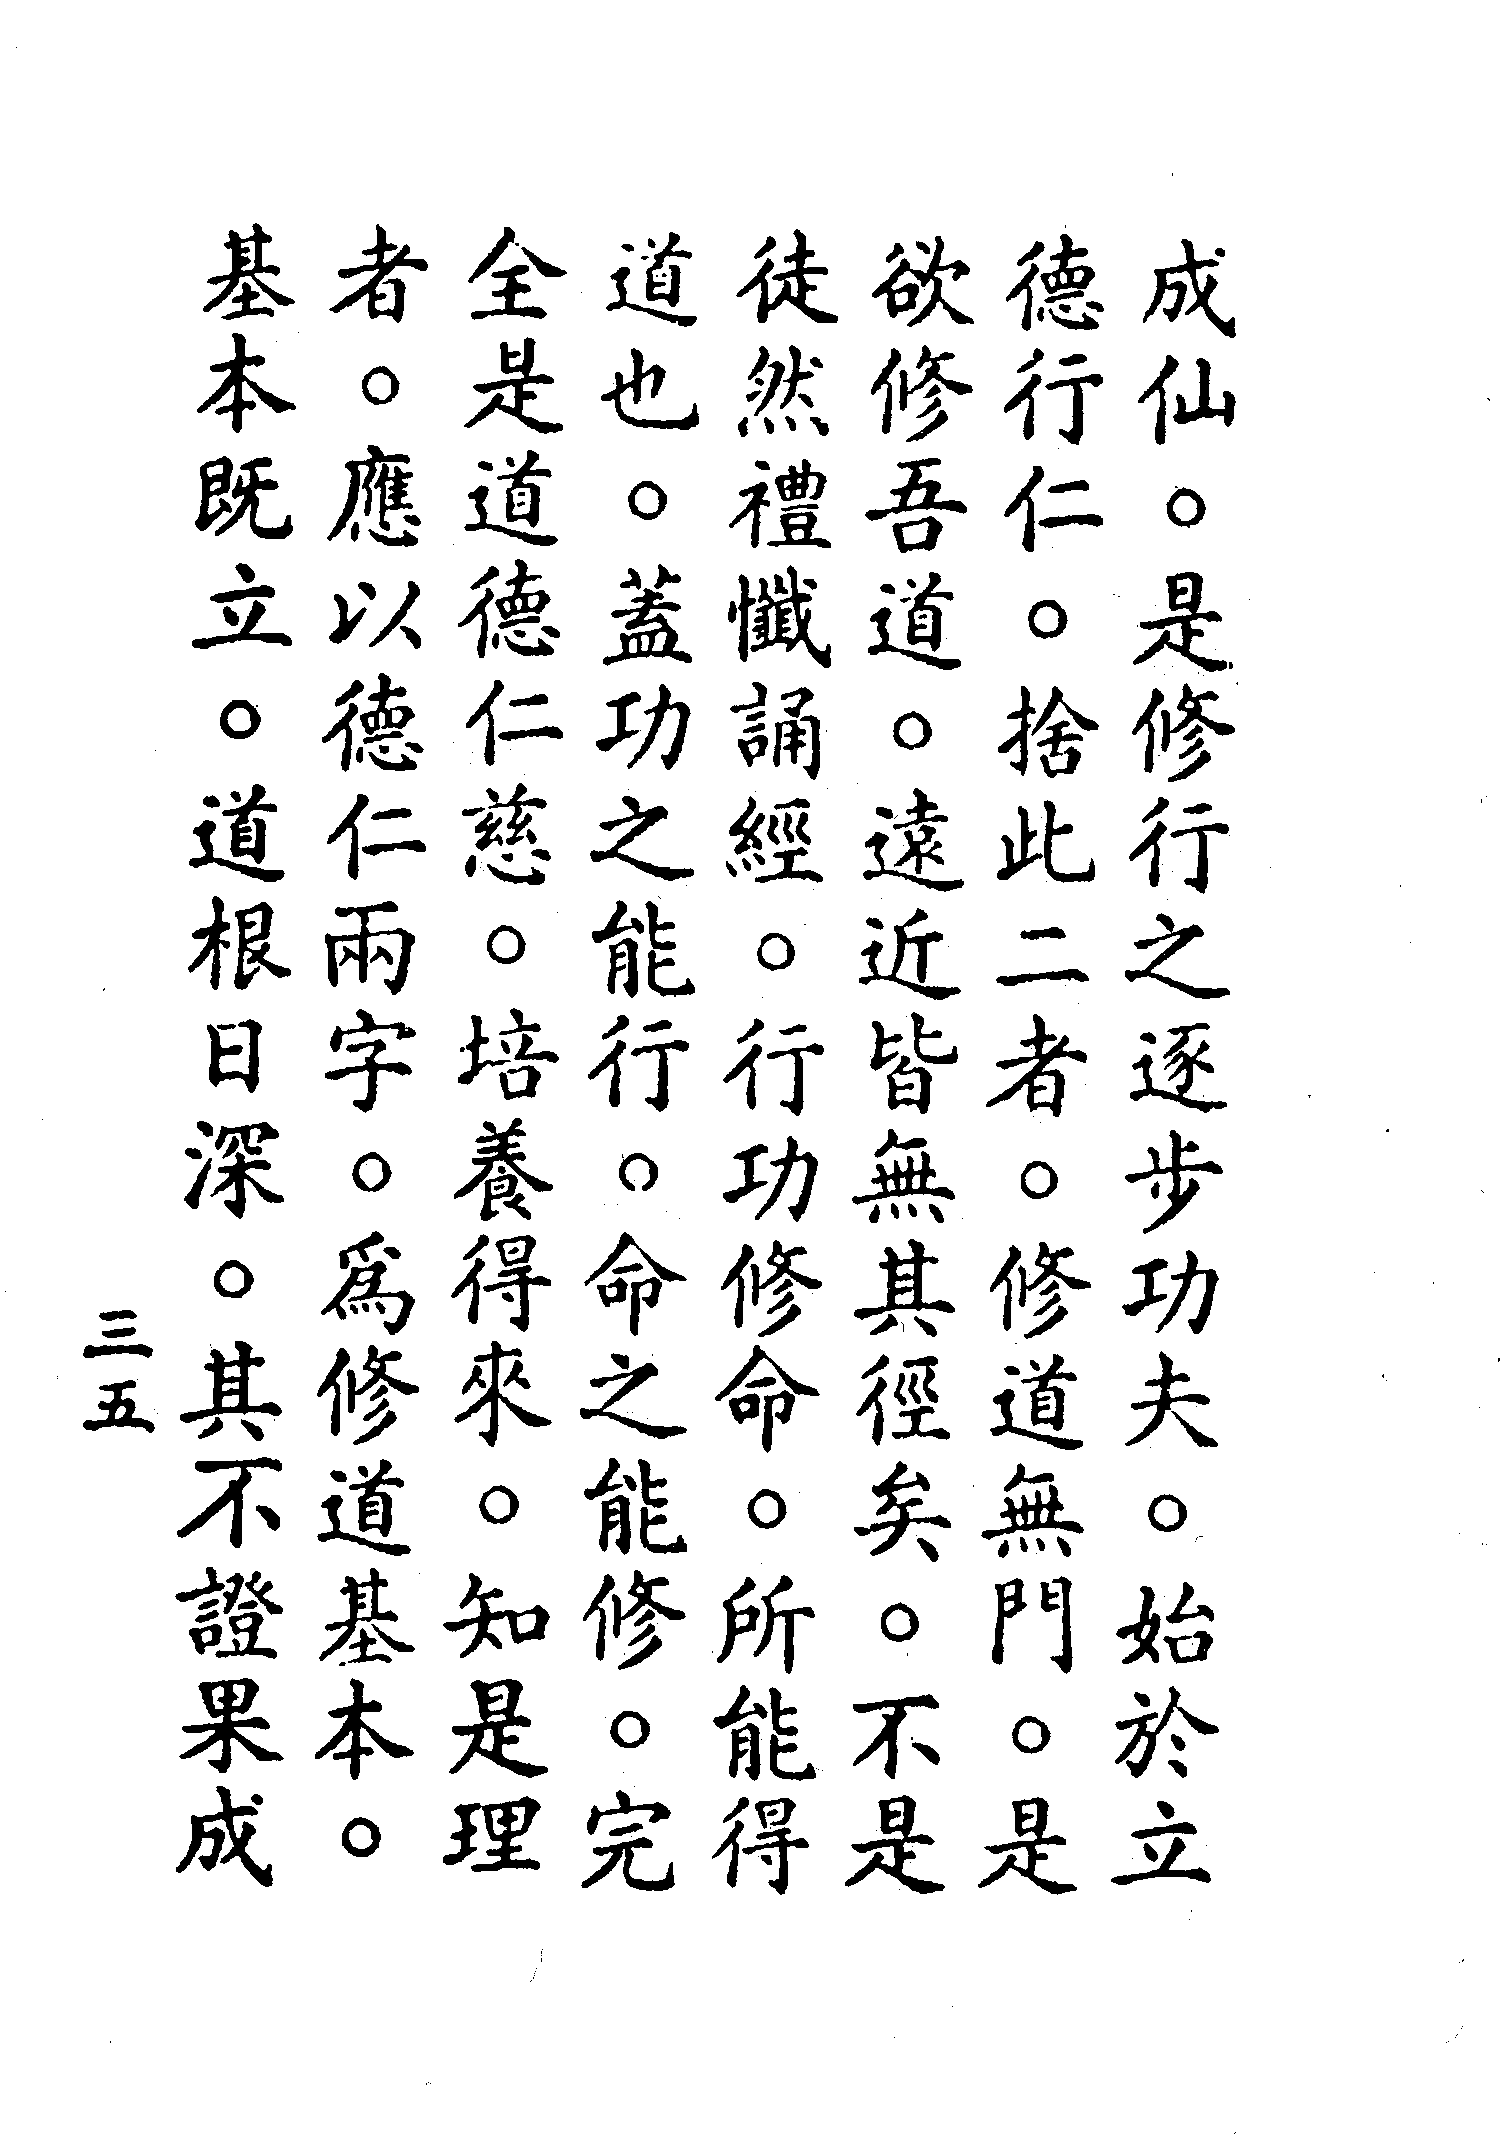 成仙。是修行之逐步功夫。始於立
德行仁。捨此二者。修道無門。是
欲修吾道。遠近皆無其徑矣。不是
徒然禮懺誦經。行功修命。所能得
道也。蓋功之能行。命之能修。完
全是道德仁慈。培養得來。知是理
者。應以德仁兩字。爲修道基本。
基本既立。道根日深。其不證果成
三五